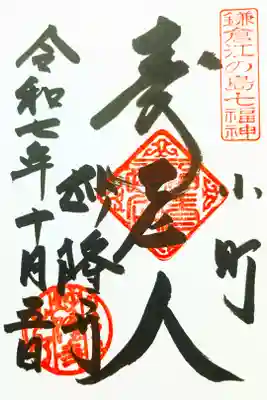 鎌倉江の島七福神
小町
寿老人
妙隆寺
令和七年十月三日